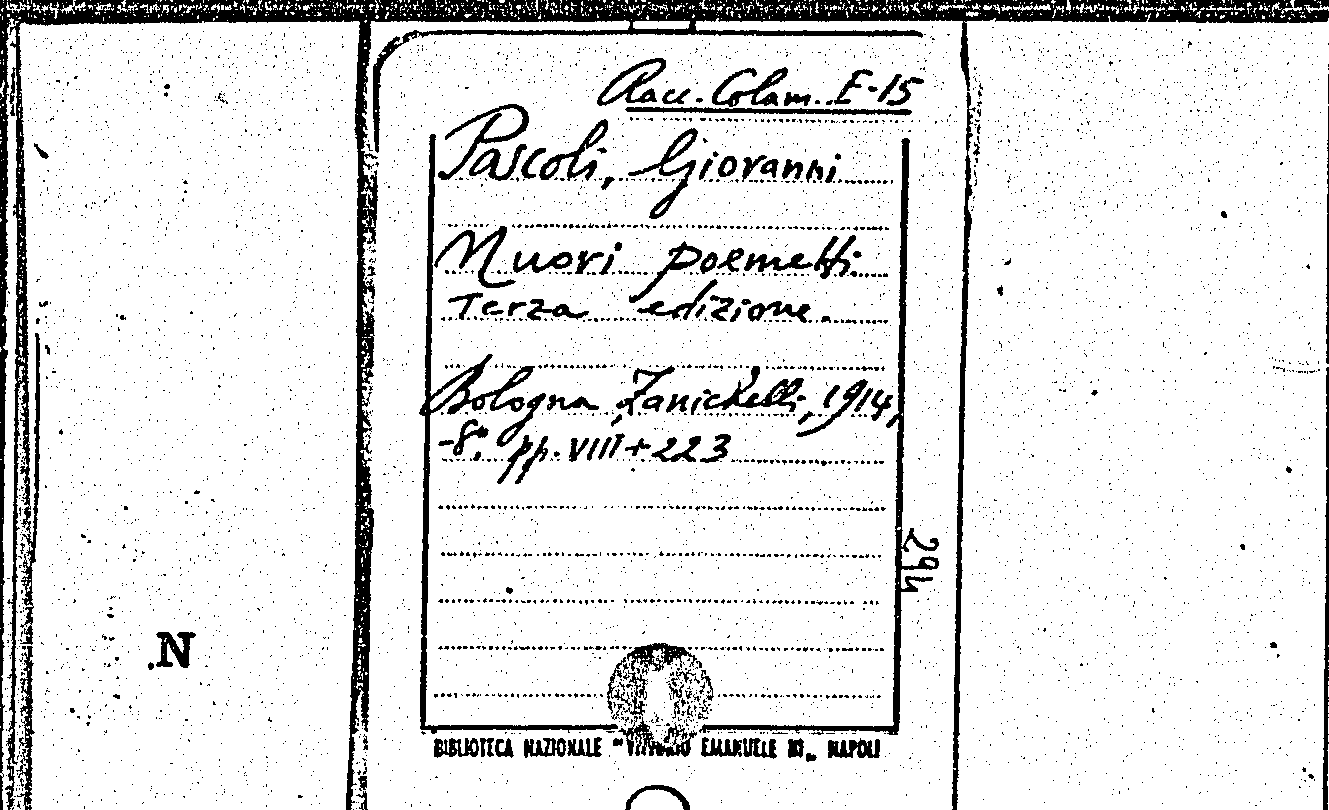 Racc. Colam. E-15
Pascoli, Giovanni
Nuovi poemetti.
Terza edizione.
Bologna, Zanichelli, 1914,
-8°. pp. VIII+223
294
N
BIBLIOTECA NAZIONALE "VITTORIO EMANUELE III" NAPOLI